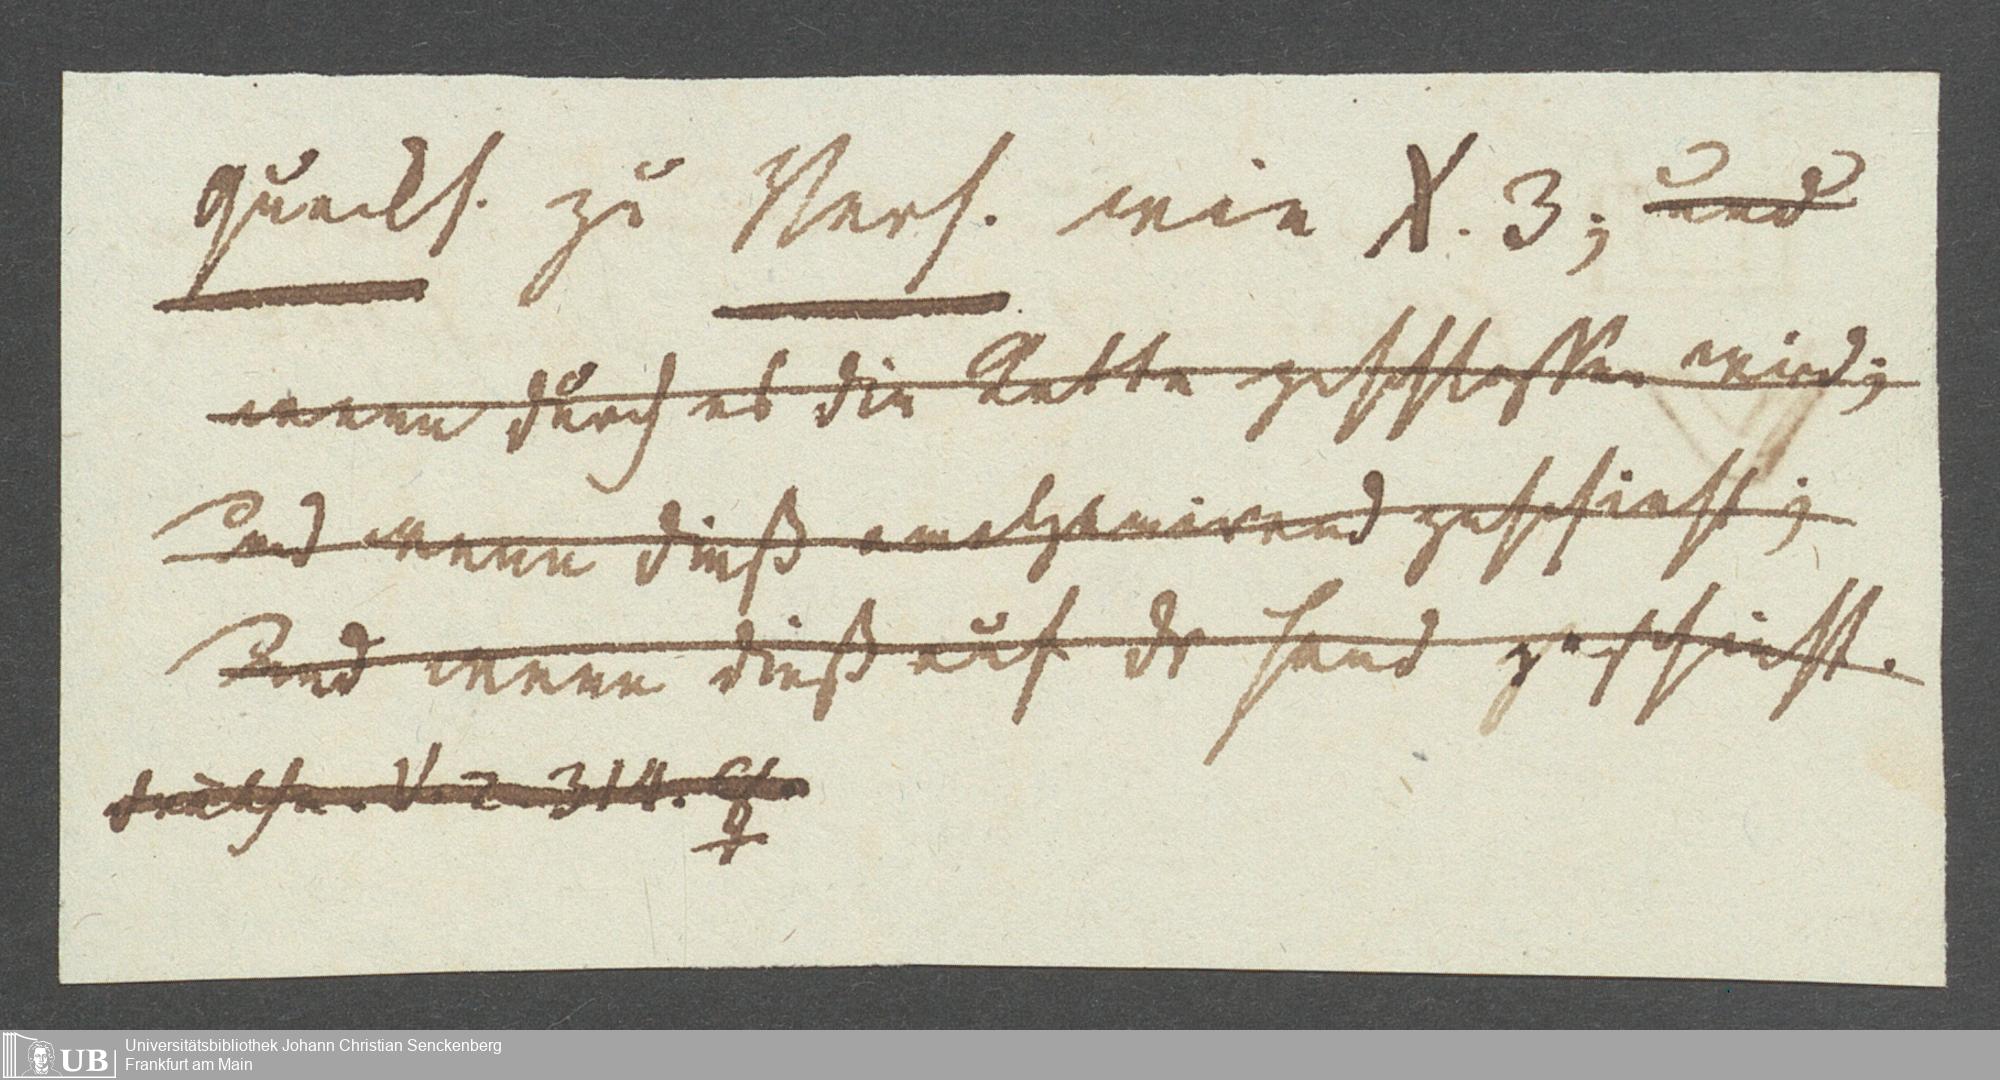 Quecks. zu Vers. wie X. 3; und
wenn durch es die Kette geschlossen wird;
und wenn dieß amalgamirend geschieht;
und wenn dieß auf der Hand geschieht.
V. 2. 314.
UB Universitätsbibliothek Johann Christian Senckenberg
Frankfurt am Main